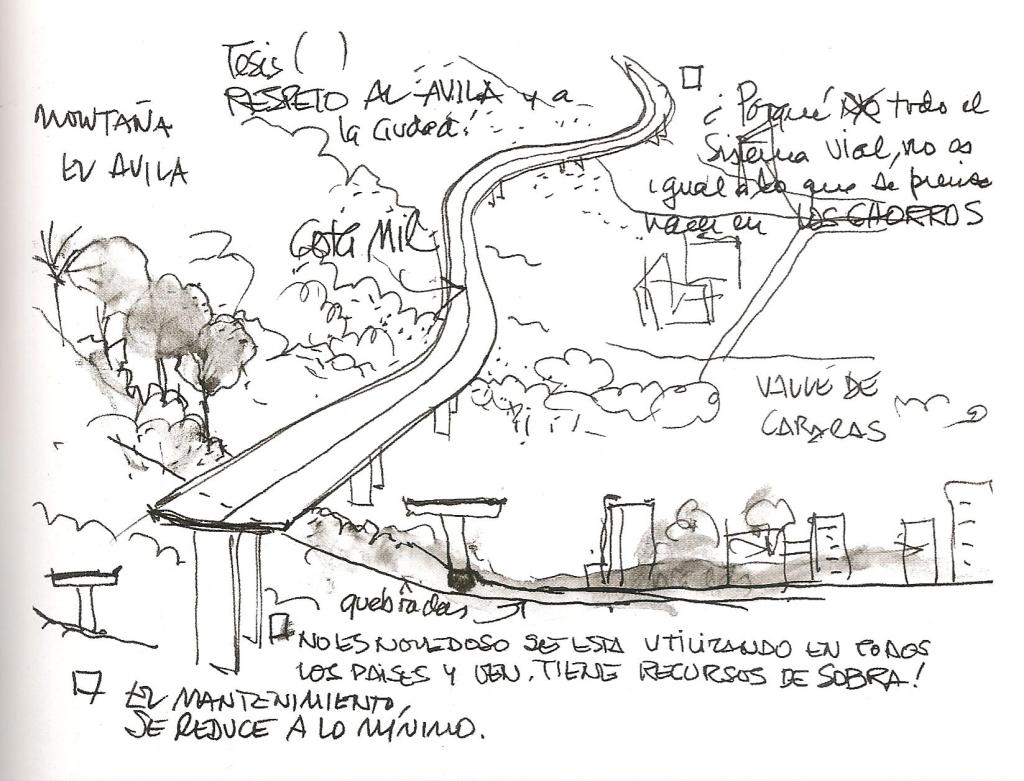 Tesis ( )
RESPETO AL AVILA y a
la ciudad.
MONTAÑA
EL AVILA
¿Porqué NO todo el
sistema vial, no es
igual a lo que se piensa
hacer en LOS CHORROS
Cota Mil
VALLE DE
CARACAS
quebradas
NO ES NOVEDOSO SE ESTA UTILIZANDO EN TODOS
LOS PAISES Y VEN. TIENE RECURSOS DE SOBRA!
EL MANTENIMIENTO,
SE REDUCE A LO MÍNIMO.